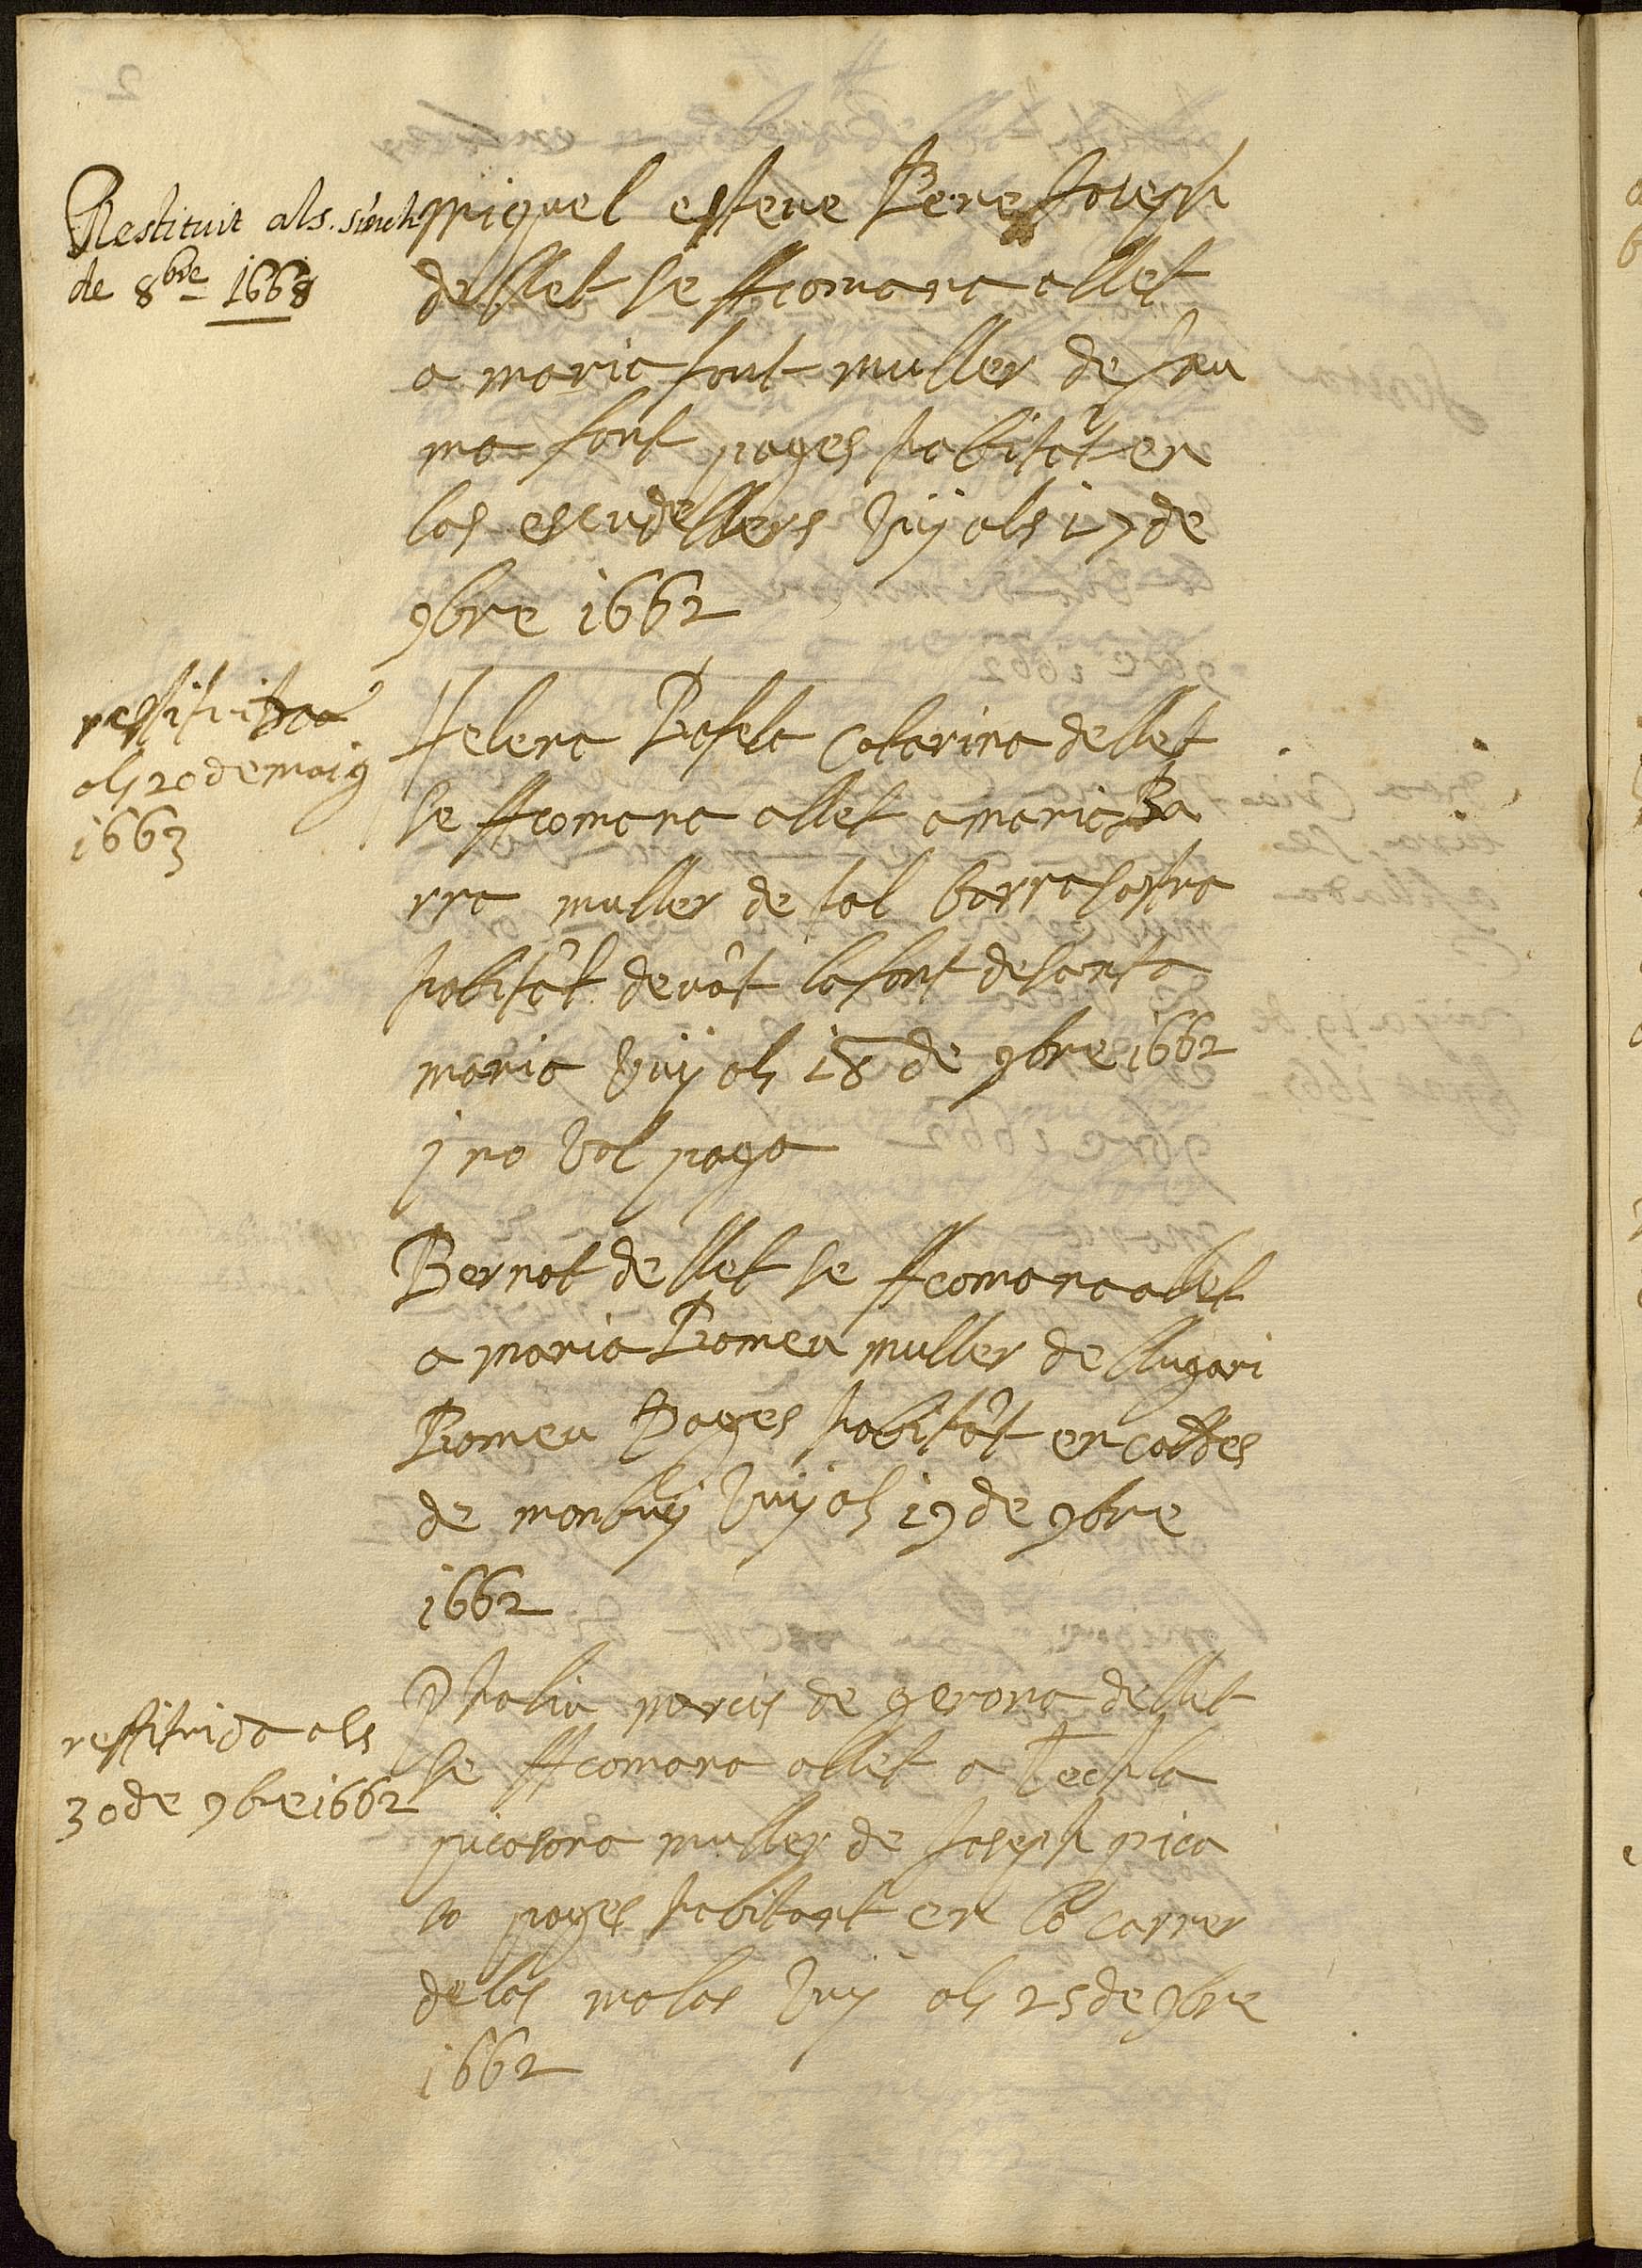 Restituit als sinch
de 8bre 1668
Miquel esteve Pere Joseph
de llet se Acomana a llet
a maria font muller de Jau
me font pages habitât en
los escudellers vuy als 17 de
9bre 1662
restituida
als 20 de maig
1663
Helena Rafela Catarina de llet
se Acomana a llet a maria Ba
rra muller de tal barra sastra
habitât devât la font de santa
maria vuy als 18 de 9bre 1662
y no vol paga
Bernat de llet se Acomana a llet
a maria Romeu muller de llugari
Romeu Pages habitât en caldes
de monbuy vuy als 19 de 9bre
1662
restituida als
30 de 9bre 1662
narcis de gerona de llet
se Acomana a llet a Techla
picasona muller de Joseph pica
so pages habitant en lo carrer
de las molas vuy als 25 de 9bre
1662